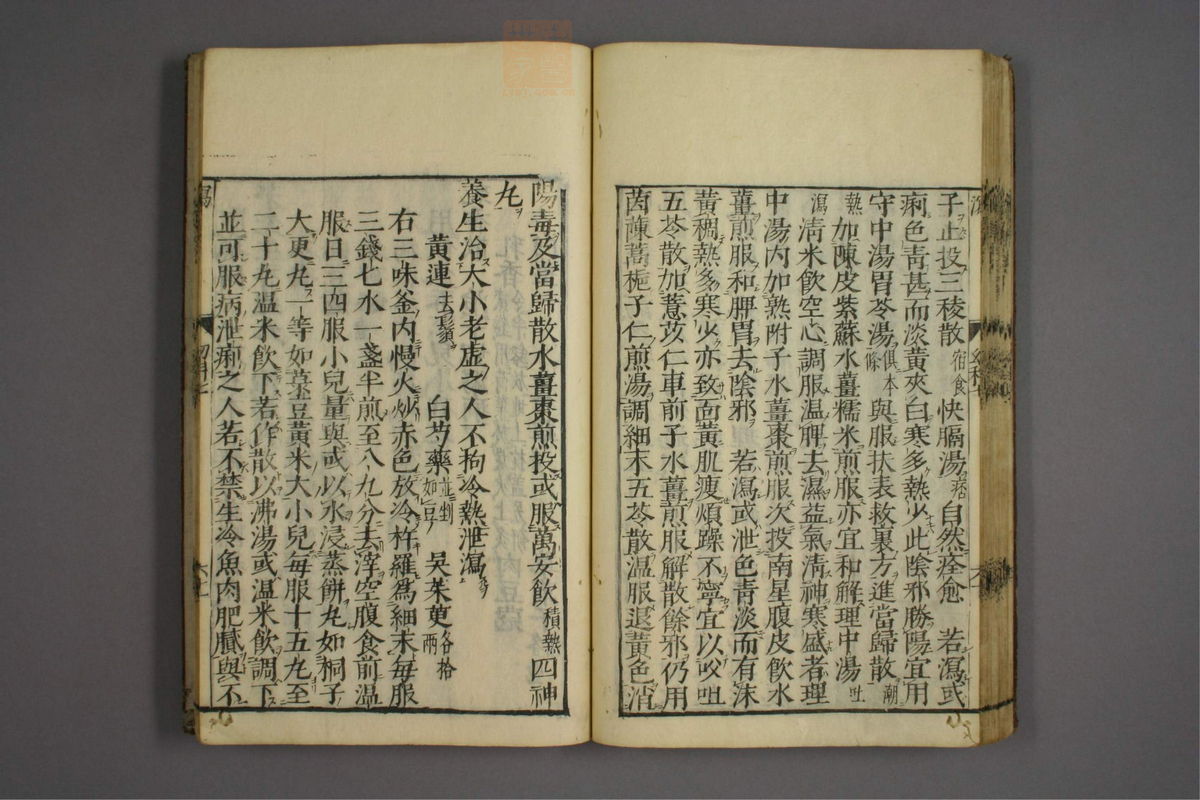 子止投三稜散宿食快膈湯痞自然痊愈　若瀉或
痢色青甚而淡黃夾白寒多熱少此陰邪勝陽宜用
守中湯胃苓湯俱本條與服扶表救裏方進當歸散潮
熱加陳皮紫蘇水薑糯米煎服亦宜和解理中湯吐
瀉清米飲空心調服溫脾去濕益氣清神寒盛者理
中湯內加熟附子水薑棗煎服次投南星腹皮飲水
薑煎服和脾胃去陰邪　若瀉或泄色青淡而有沫
黃稠熱多寒少亦致面黃肌瘦煩躁不寧宜以㕮咀
五苓散加薏苡仁車前子水薑煎服解散餘邪仍用
茵蔯蒿梔子仁煎湯調細末五苓散溫服退黃色消
陽毒及當歸散水薑棗煎投或服萬安飲積熱四神
丸
養生治大小老虛之人不拘冷熱泄瀉
黃連去鬚　白芍藥並剉如豆　吳茱萸各拾兩
右三味釜內慢火炒赤色放冷杵羅爲細末每服
三錢七水一盞半煎至八九分去滓空腹食前溫
服日三四服小兒量與或以水浸蒸餅丸如桐子
大更丸一等如菉豆黃米大小兒每服十五丸至
二十丸溫米飲下若作散以沸湯或溫米飲調下
並可服病泄痢之人若不禁生冷魚肉肥膩與不